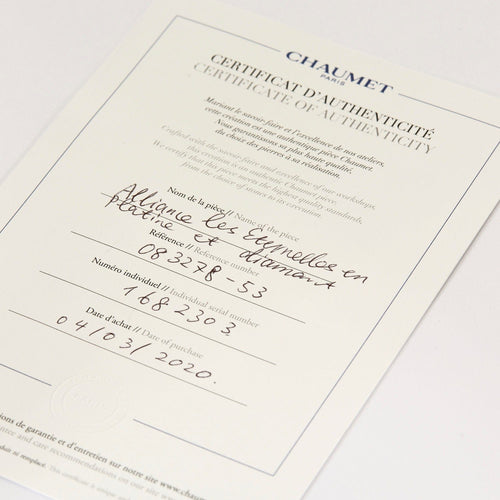 CHAUMET
PARIS
CERTIFICAT D'AUTHENTICITÉ
CERTIFICATE OF AUTHENTICITY
Mariant le savoir-faire et l'excellence de nos ateliers,
cette création est une authentique pièce Chaumet.
Nous garantissons sa plus haute qualité,
du choix des pierres à sa réalisation.
Crafted with the savoir-faire and excellence of our workshops,
this creation is an authentic Chaumet piece.
We certify that this piece meets the highest quality standards,
from the choice of stones to its execution.
Nom de la pièce // Name of the piece
Alliance les Eternelles en
platine et diamant
Référence // Reference number
083278-53
Numéro individuel // Individual serial number
1682303
Date d'achat // Date of purchase
04/03/2020.
tions de garantie et d'entretien sur notre site www.chaum
antee and care recommendations on our site ww
duit ni remplacé. This certificate is unique